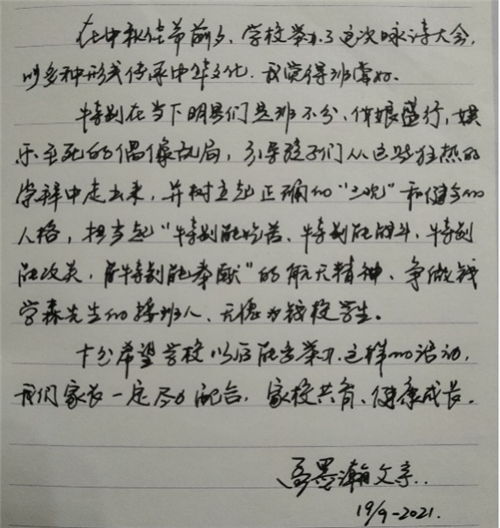 在中秋佳节前夕，学校举办了这次咏诗大会，
以多种形式传承中华文化，我觉得非常好。
特别在当下明星们是非不分，伪娘盛行，娱
乐至死的偶像乱局，引导孩子们从这些狂热的
崇拜中走出来，并树立起正确的“三观”和健全的
人格，担当起“特别能吃苦、特别能战斗、特别
能攻关，特别能奉献”的航天精神、争做钱
学森先生的接班人、无愧为钱校学生。
十分希望学校以后能多举办这样的活动，
我们家长一定尽力配合，家校共育、健康成长。
墨瀚父亲..
19/9-2021.